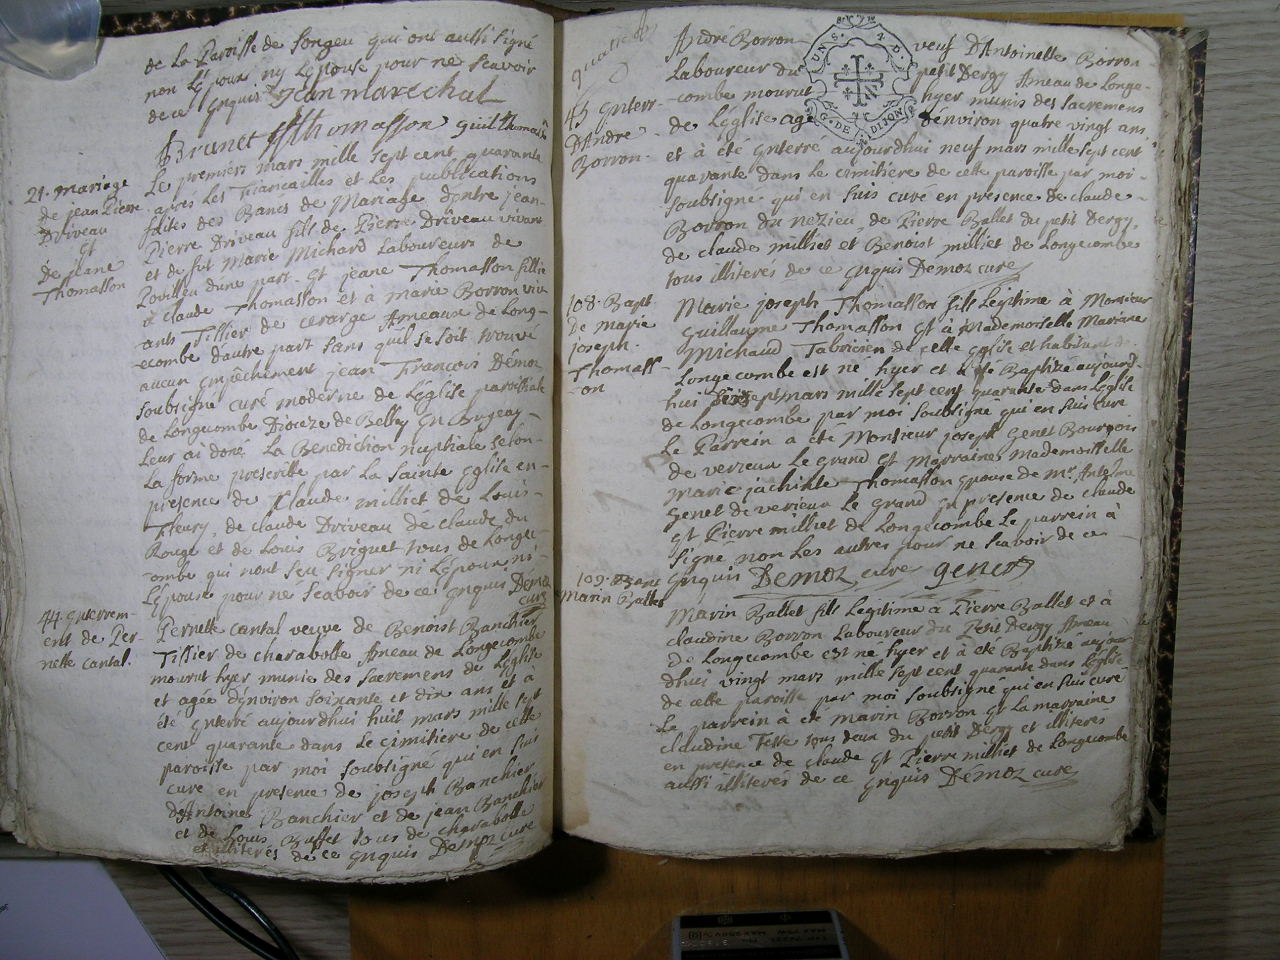 de La Paroisse de Songeu qui ont aussi signé
non L'Epoux ny L'Epouse pour ne Scavoir
de ce Enquis Jean marechal
Brunet Thomasson Guil Thomas
21. mariage
de jean Pierre
Driveau
Et
de jeane
Thomasson
Le premiers mars mille sept cent quarante
après Les fiancailles et Les publications
faites des Bancs de Mariage dentre jean-
Pierre Driveau fils de Pierre Driveau vivant
et de fut Marie Michard Laboureurs de
dune part. et jeane Thomasson fillie
à claude Thomasson et à marie Borron viv-
ants Tissier de cerarge Ameaux de Long-
ecombe d'autre part sans quil se soit trouvé
aucun Empêchement jean François Démoz
soubsigné curé moderne de L'Eglise paroissiale
de Longecombe Diocèze de Belley En Bugeay-
Leur ai doné La Benediction nuptiale selon-
La forme prescrite par La sainte Eglise en-
presence de Claude milliet de Louis-
Fleury, de claude Driveau de claude du
Rouge et de Louis Briguet tous de Longec-
ombe qui nont seu signer ni L'époux ni
L'épouse pour ne scavoir de ce Enquis Démoz
curé
44. Enterrem-
ent de Per-
nette cantal.
Pernette cantal veuve de Benoist Banchier
Tissier de charabotte Ameau de Longecombe
mourut hyer munie des sacremens de L'Eglise
et agée d'environ soixante et dix ans et à
été Enterré aujourdhui huit mars mille sept
cent quarante dans Le cimitière de cette
paroisse par moi soubsigné qui en suis
curé en presence de joseph Banchier
d'Antoine Banchier et de jean Banchier
et de Louis Buffet tous de charabotte
et illiterés de ce Enquis Demoz curé
45 Enterr-
D'André
Borron-
André Borron veuf D'Antoinette Borron
Laboureur du petit Dergy Ameau de Longe-
combe mourut hyer munis des sacremens
de L'église agé d'environ quatre vingt ans
et à été Enterré aujourdhui neuf mars mille sept cent
quarante dans Le cimitière de cette paroisse par moi-
soubsigné qui en suis curé en presence de claude-
Borron du nezieu, de Pierre Ballet du petit Dergy,
de claude milliet et Benoist milliet de Longecombe
tous illiterés de ce Enquis Demoz curé
108. Bapt
de marie
joseph.
Thomass-
-on
Marie joseph Thomasson fils Legitime à Monsieur
Guillaume Thomasson Et à Mademoiselle Mariane
Michaud fabricien de cette Eglise et habitant de
Longecombe est né hyer et à été Baptizé aujourd-
hui sept mars mille sept cent quarante dans L'église
de Longecombe par moi soubsigné qui en suis curé
Le Parrein a été Monsieur joseph Genet Bourgois
de verzeux Le grand Et Marraine Mademoiselle
marie jachinte Thomasson épouse de Mr. Antelme
Genet de verieux Le grand En presence de claude
Et Pierre milliet de Longecombe Le parrein à
signé non Les autres pour ne scavoir de ce
Enquis Demoz curé genet
109. Bapt
Marin Ballet
Marin Ballet fils Legitime à Pierre Ballet et à
claudine Borron Laboureur du Petit Dergy Ameau
de Longecombe est né hyer et à été Baptizé aujour
dhui vingt mars mille sept cent quarante dans L'église
de cette paroisse par moi soubsigné qui en suis curé
Le parrein à été marin Borron Et La marraine
claudine tous deux du petit Dergy et illiterés
en presence de claude Et Pierre milliet de Longecombe
aussi illiterés de ce Enquis Démoz curé